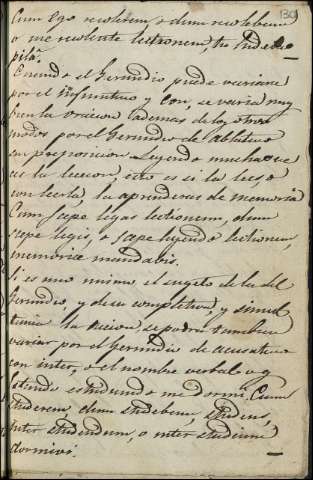 130
Cum Ego nolebam, o dum nolebam
o me nolente lectionem, tu
Cuando el Gerundio puede variarse
por el Infinitivo y Con, se varia muy
bien la oracion ademas de los otros
modos por el Gerundio de ablativo
sin preposicion Leyendo muchas ve
ces la leccion, esto es si la lees, o
con leerla, la aprenderas de memoria
Cum sæpe legas lectionem, dum
sæpe legis, o sæpe legendo lectionem
memoriæ mandabis.
Si es uno mismo el sugeto de la del
Gerundio, y de su completiva, y simul
tanea la accion, se podra tambien
variar por el Gerundio de acusativo
con inter, o el nombre verbal v.g.
estudiando me dormi. Cum
studerem, dum studebam, studens,
inter studendum, o inter studium
dormivi.